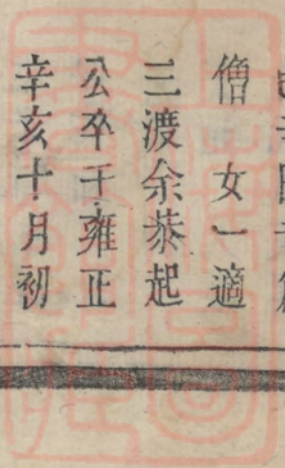 僧　女一適
三渡余恭起
公卒于雍正
辛亥十月初